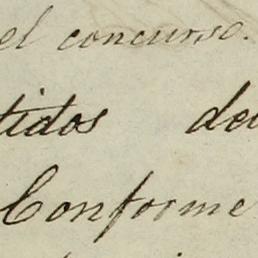 el concurso.
tidos de
Conforme